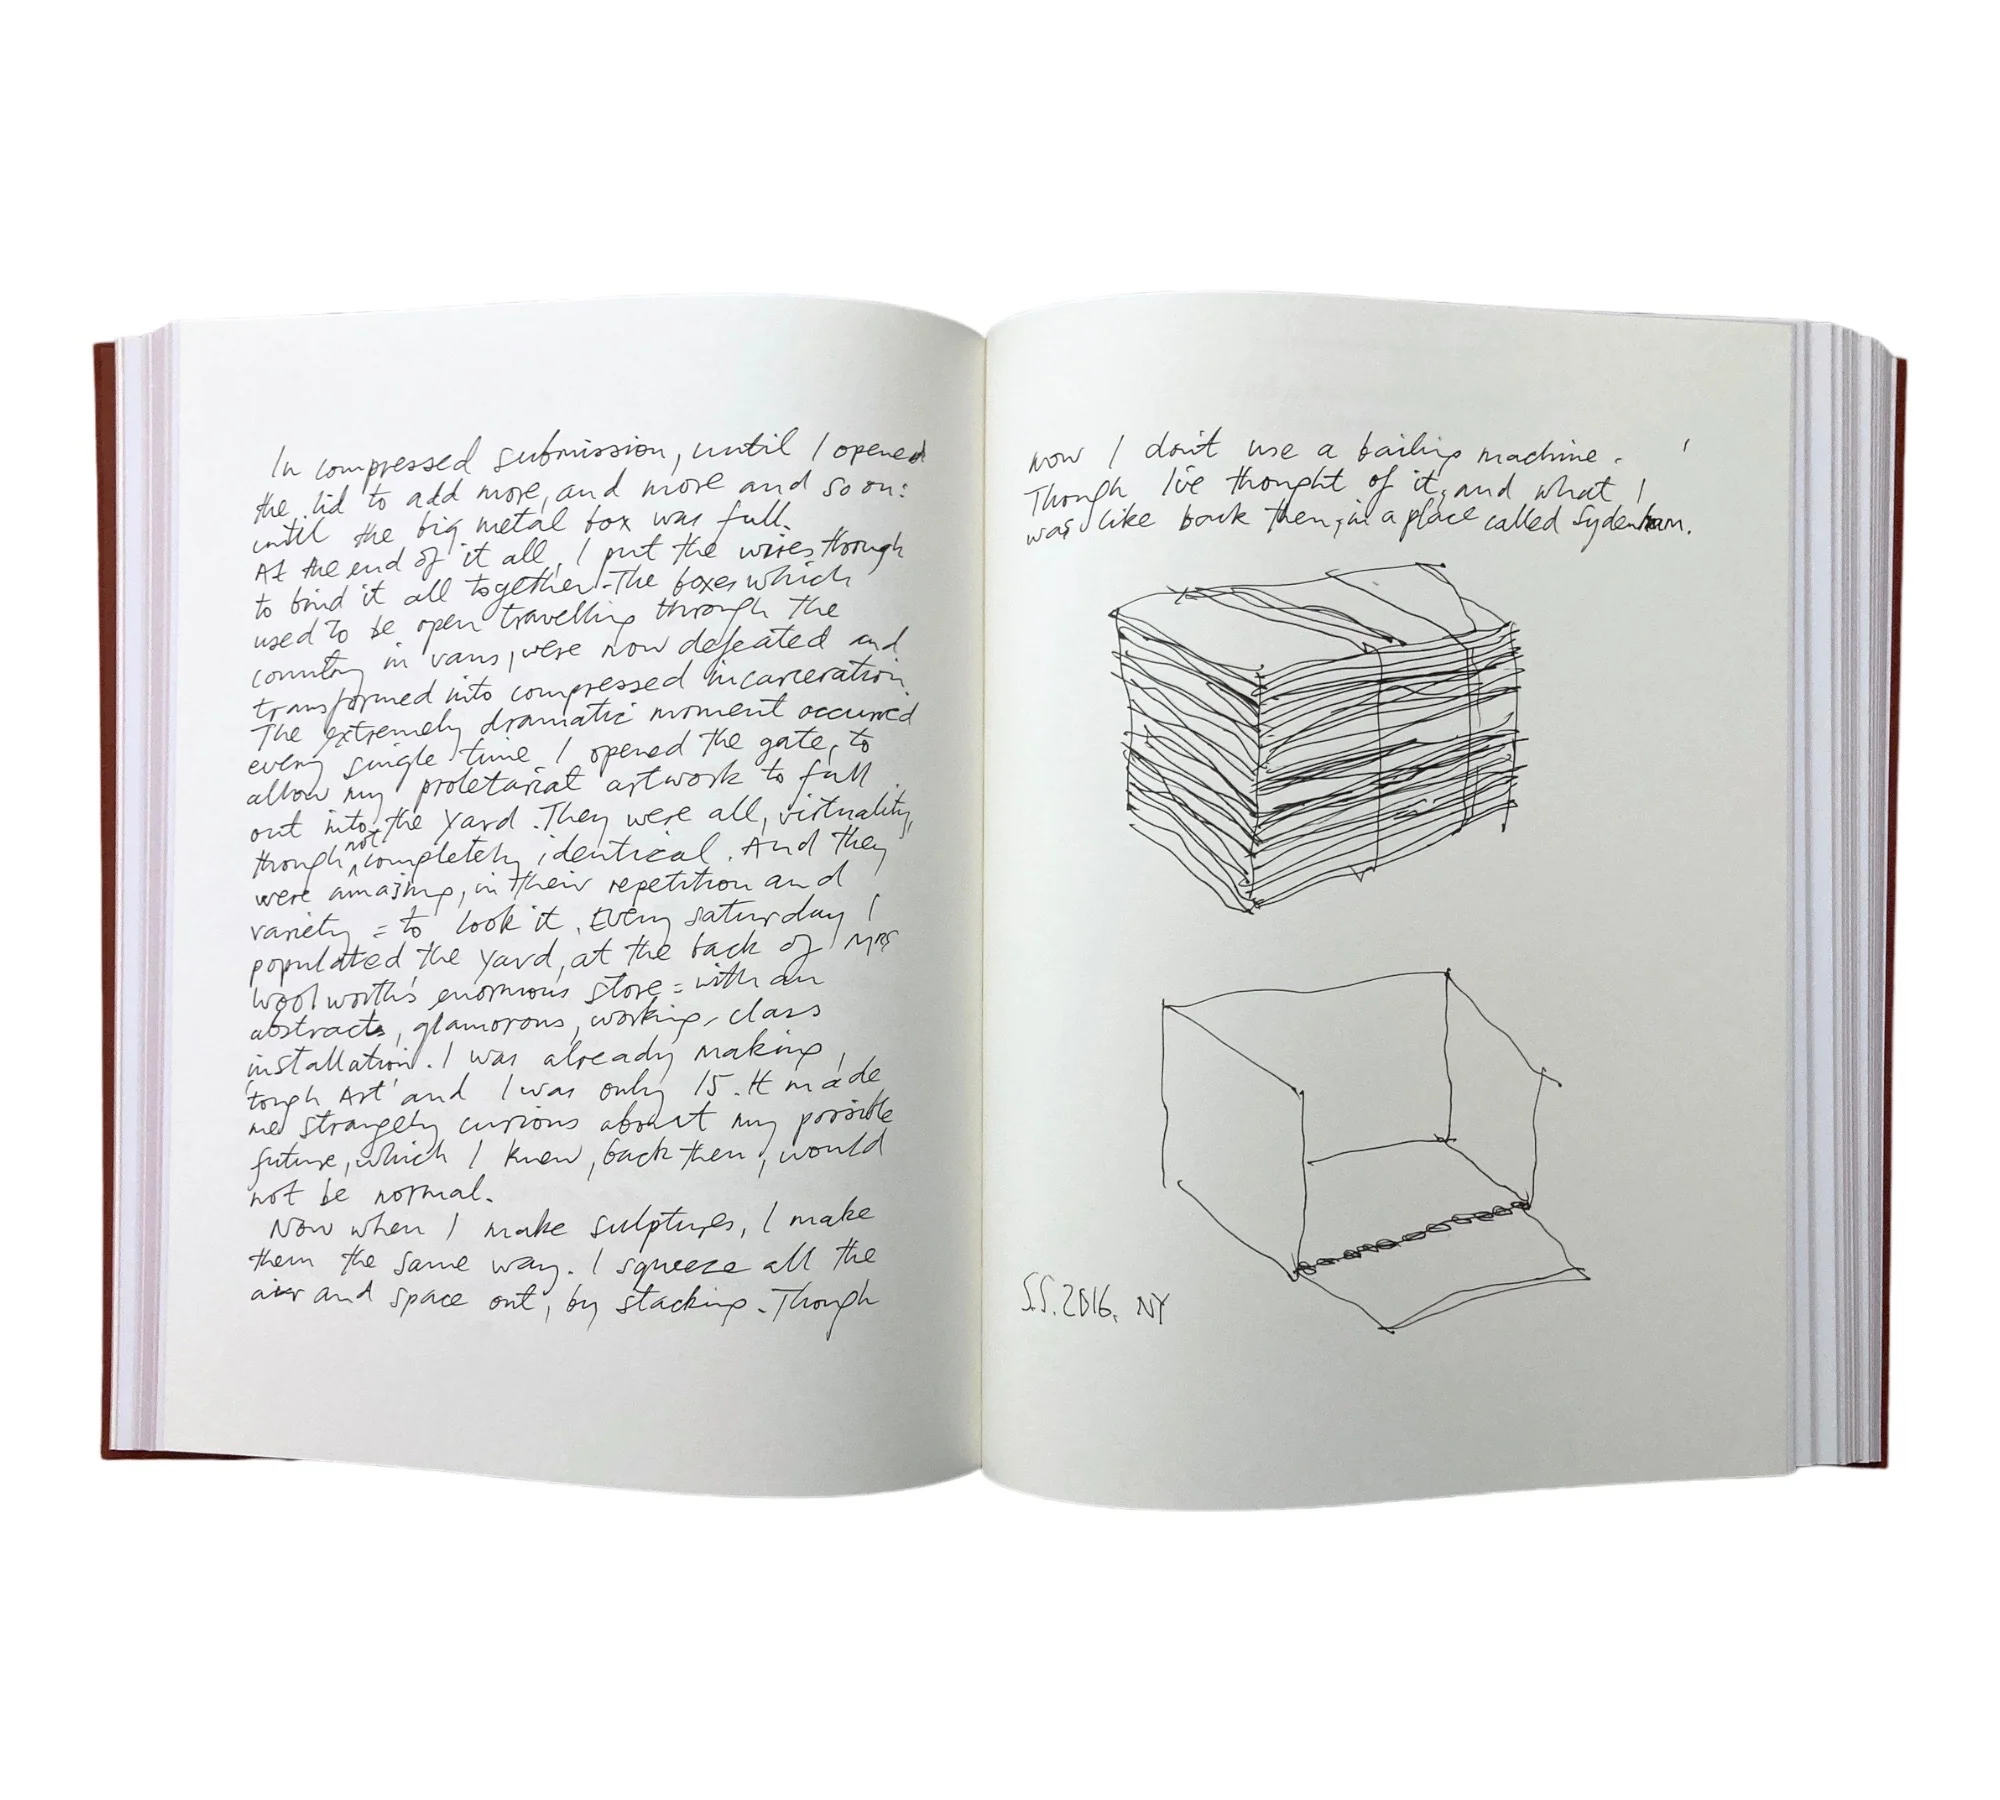 In compressed submission, until I opened
the lid to add more, and more and so on:
until the big metal box was full.
At the end of it all, I put the wires through
to bind it all together. The boxes which
used to be open travelling through the
country in vans, were now defeated and
transformed into compressed incarceration.
The extremely dramatic moment occurred
every single time I opened the gate, to
allow my proletariat artwork to fall
out into the yard. They were all, virtuality,
though not completely identical. And they
were amazing, in their repetition and
variety = to look it. Every saturday I
populated the yard, at the back of Mrs
Woolworth's enormous store = with an
abstracts, glamorous, working-class
installation. I was already making
'tough Art' and I was only 15. It made
me strangely curious about my possible
future, which I knew, back then, would
not be normal.
Now when I make sulptures, I make
them the same way. I squeeze all the
air and space out, by stacking. Though
now I don't use a bailing machine.
Though I've thought of it, and what I
was like back then, in a place called Sydenham.
S.S. 2016. NY